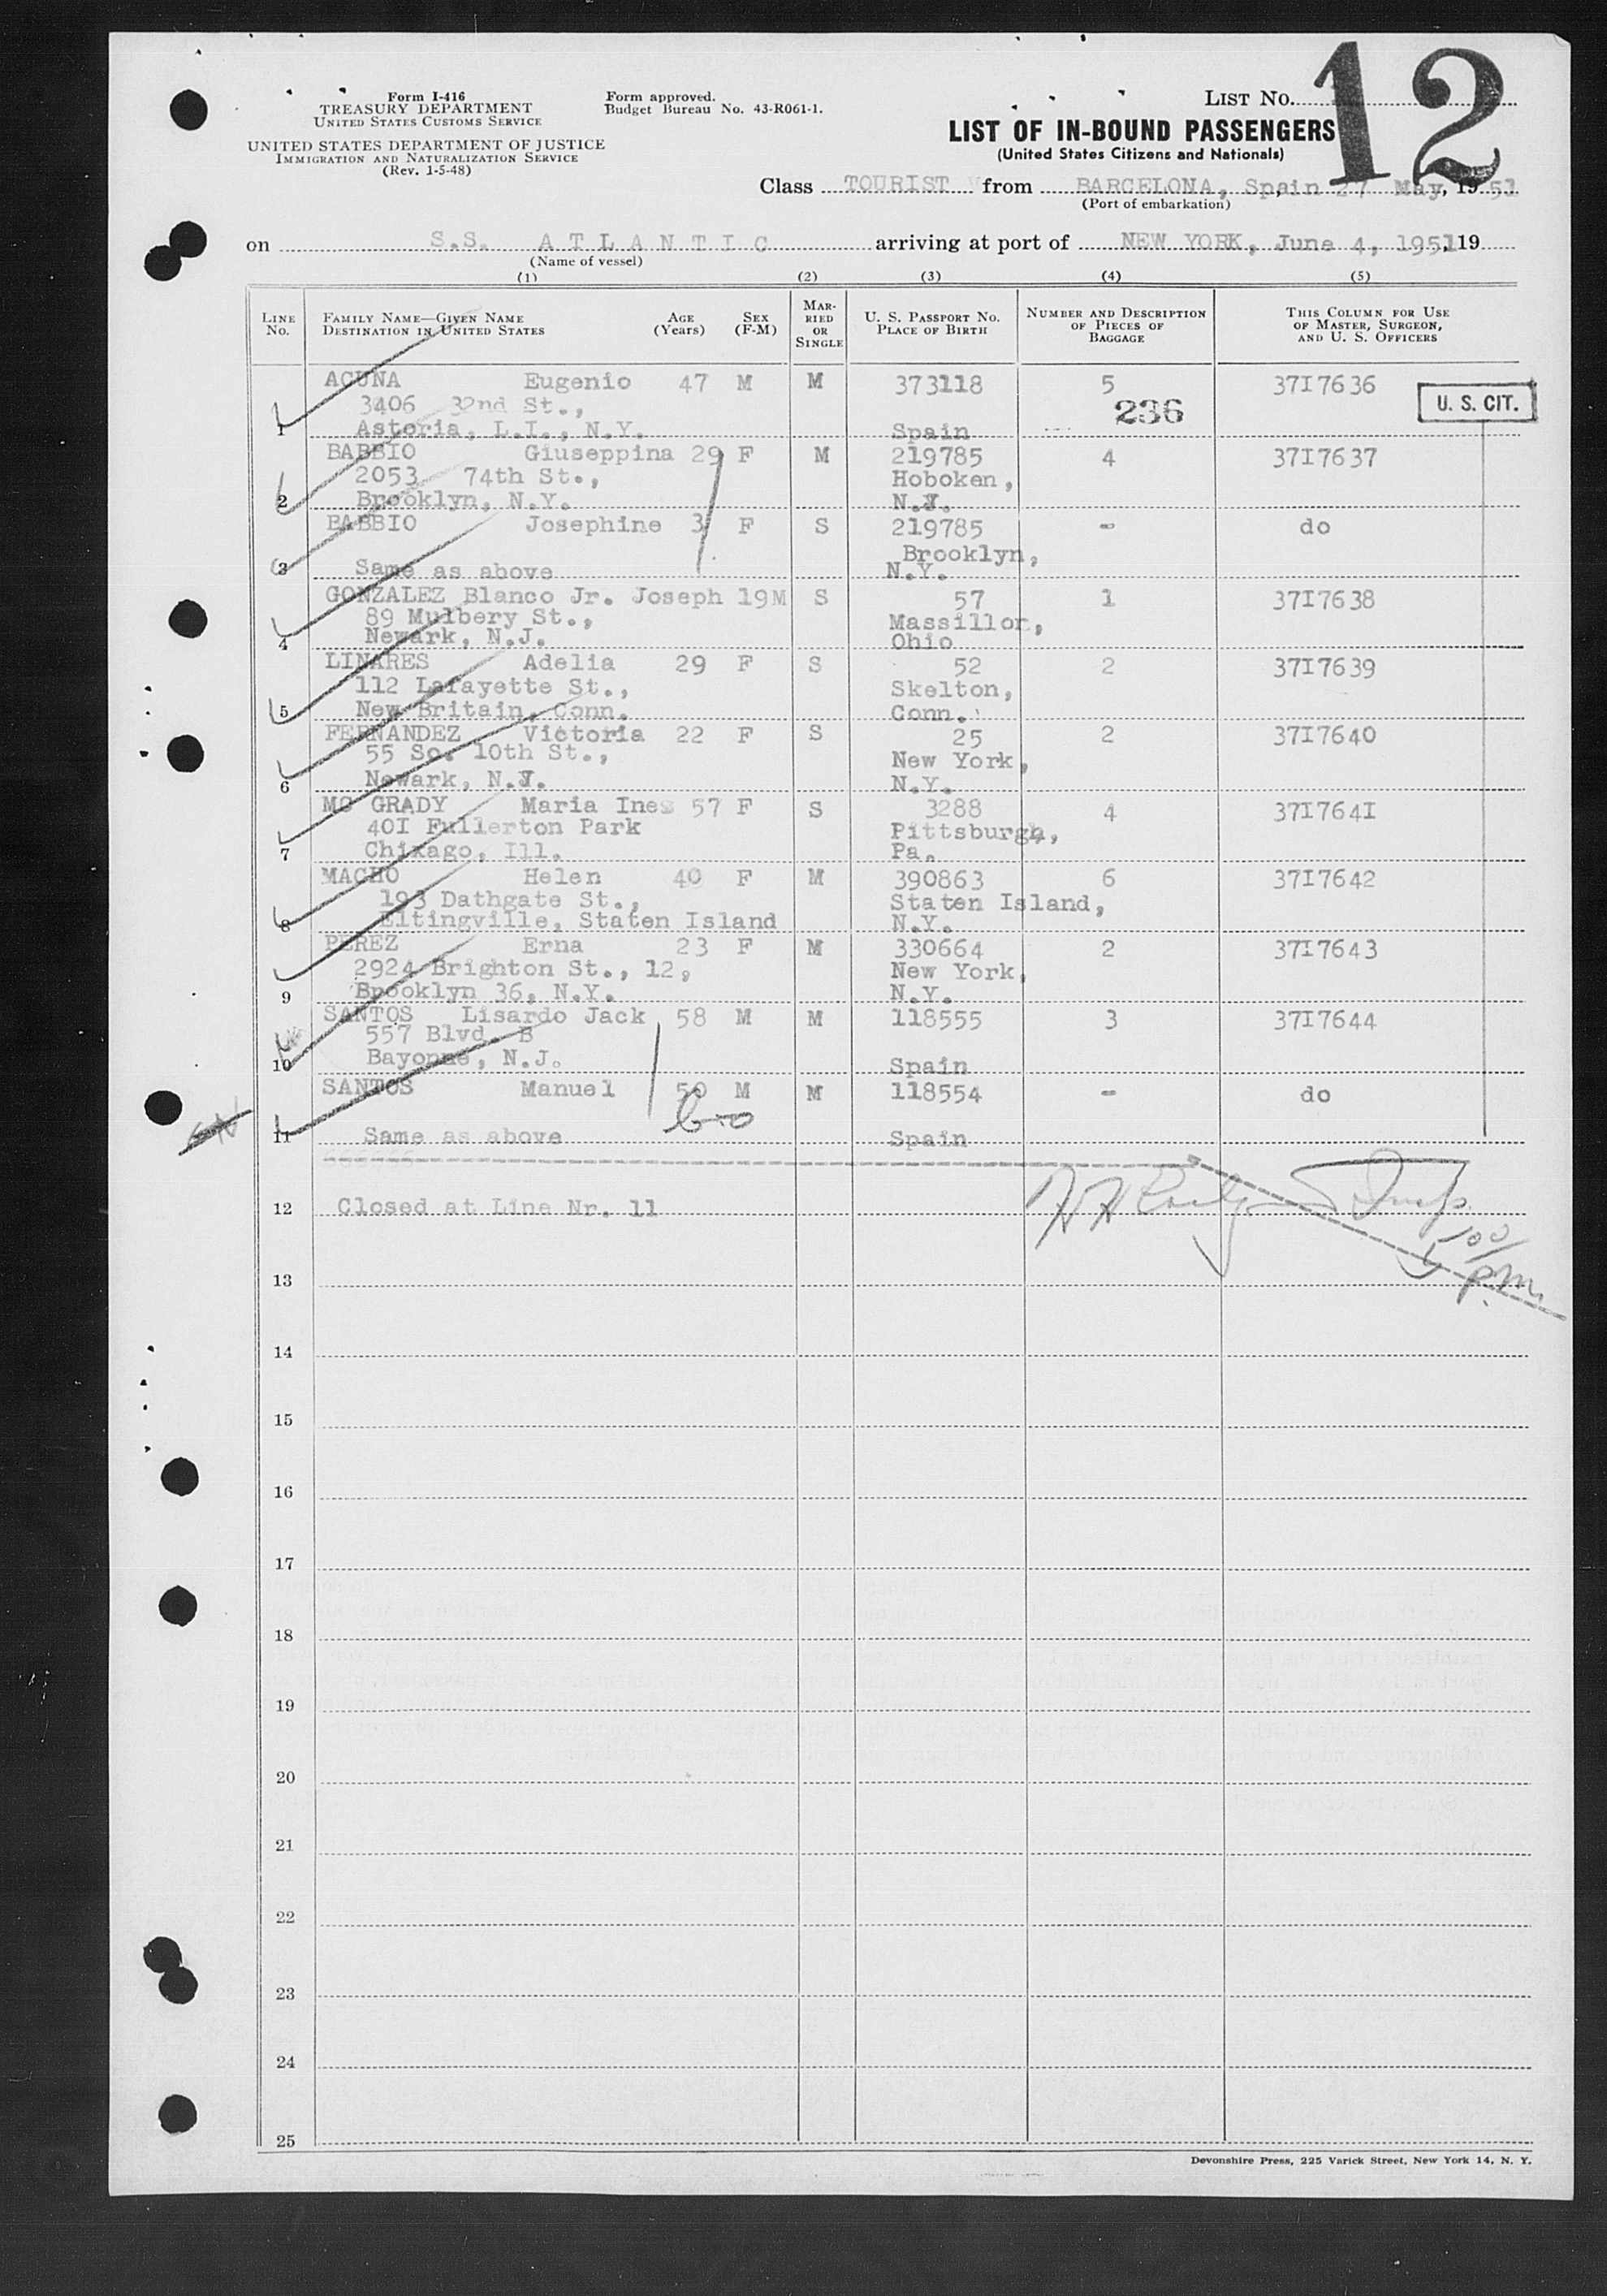 Form I-416
TREASURY DEPARTMENT
UNITED STATES CUSTOMS SERVICE
UNITED STATES DEPARTMENT OF JUSTICE
IMMIGRATION AND NATURALIZATION SERVICE
(Rev. 1-5-48)
Form approved.
Budget Bureau No. 43-R061-1.
LIST No. 12
LIST OF IN-BOUND PASSENGERS
(United States Citizens and Nationals)
Class TOURIST from BARCELONA, Spain 27 May, 1951
(Port of embarkation)
on S.S. ATLANTIC arriving at port of NEW YORK, June 4, 1951 19
(Name of vessel)
(1) (2) (3) (4) (5)
LINE No. FAMILY NAME—GIVEN NAME DESTINATION IN UNITED STATES AGE (Years) SEX (F-M) MARRIED OR SINGLE U. S. PASSPORT No. PLACE OF BIRTH NUMBER AND DESCRIPTION OF PIECES OF BAGGAGE THIS COLUMN FOR USE OF MASTER, SURGEON, AND U. S. OFFICERS
ACUNA Eugenio 47 M M 373118 5 37I7636
3406 32nd St., 236 U. S. CIT.
1 Astoria, L.I., N.Y. Spain
BABBIO Giuseppina 29 F M 219785 4 37I7637
2053 74th St., Hoboken,
2 Brooklyn, N.Y. N.J.
BABBIO Josephine 3 F S 219785 - do
Brooklyn,
3 Same as above N.Y.
GONZALEZ Blanco Jr. Joseph 19 M S 57 1 37I7638
89 Mulbery St., Massillon,
4 Newark, N.J. Ohio
LINARES Adelia 29 F S 52 2 37I7639
112 Lafayette St., Skelton,
5 New Britain, Conn. Conn.
FERNANDEZ Victoria 22 F S 25 2 37I7640
55 So. 10th St., New York,
6 Newark, N.J. N.Y.
MC GRADY Maria Ines 57 F S 3288 4 37I7641
40I Fullerton Park Pittsburgh,
7 Chixago, Ill. Pa.
MACHO Helen 40 F M 390863 6 37I7642
193 Dathgate St., Staten Island,
8 Eltingville, Staten Island N.Y.
PEREZ Erna 23 F M 330664 2 37I7643
2924 Brighton St., 12, New York,
9 Brooklyn 36, N.Y. N.Y.
SANTOS Lisardo Jack 58 M M 118555 3 37I7644
557 Blvd. B
10 Bayonne, N.J. Spain
SANTOS Manuel 50 M M 118554 - do
11 Same as above Spain
12 Closed at Line Nr. 11
5 00/
pm.
13
14
15
16
17
18
19
20
21
22
23
24
25
Devonshire Press, 225 Varick Street, New York 14, N. Y.